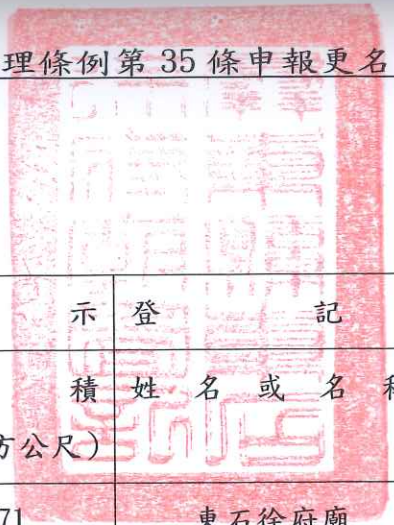 理條例第 35 條申報更名
示 登 記
積 姓 名 或 名 稱
方公尺)
71 東石徐府廟